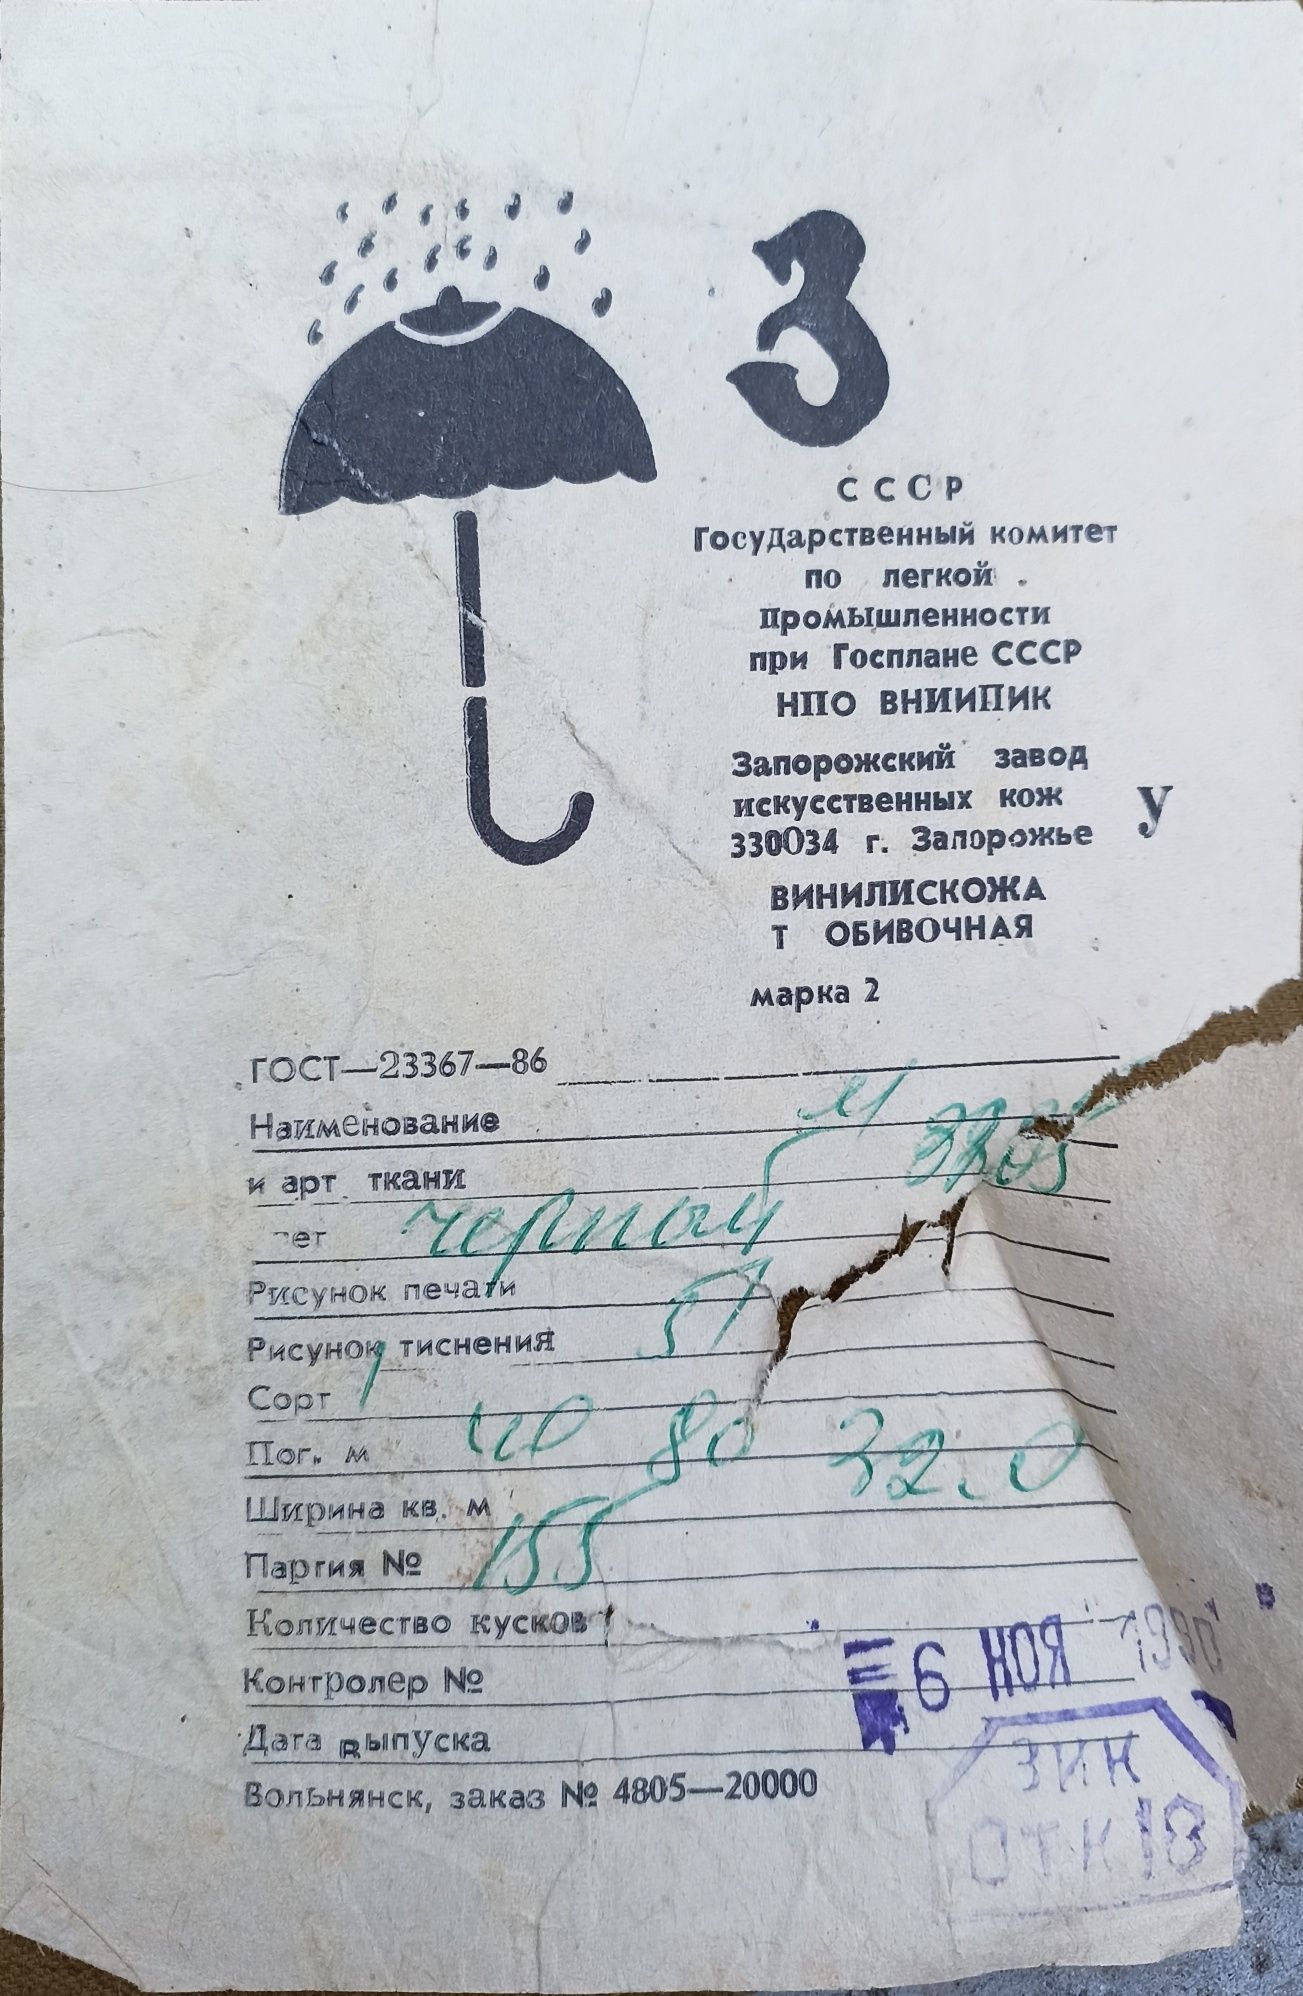 З
СССР
Государственный комитет
по легкой
промышленности
при Госплане СССР
НПО ВНИИПИК
Запорожский завод
искусственных кож
У
330034 г. Запорожье
ВИНИЛИСКОЖА
Т ОБИВОЧНАЯ
марка 2
ГОСТ—23367—86
Наименование
и арт ткани
вет черный
Рисунок печати
Рисунок тиснения 51
Сорт 1
Пог. м 40 80 32.0
Ширина кв. м
Партия № 155
Количество кусков 1
Контролер №
6 НОЯ 1990
Дата выпуска
ЗИК
Вольнянск, заказ № 4805—20000
ОТК 18